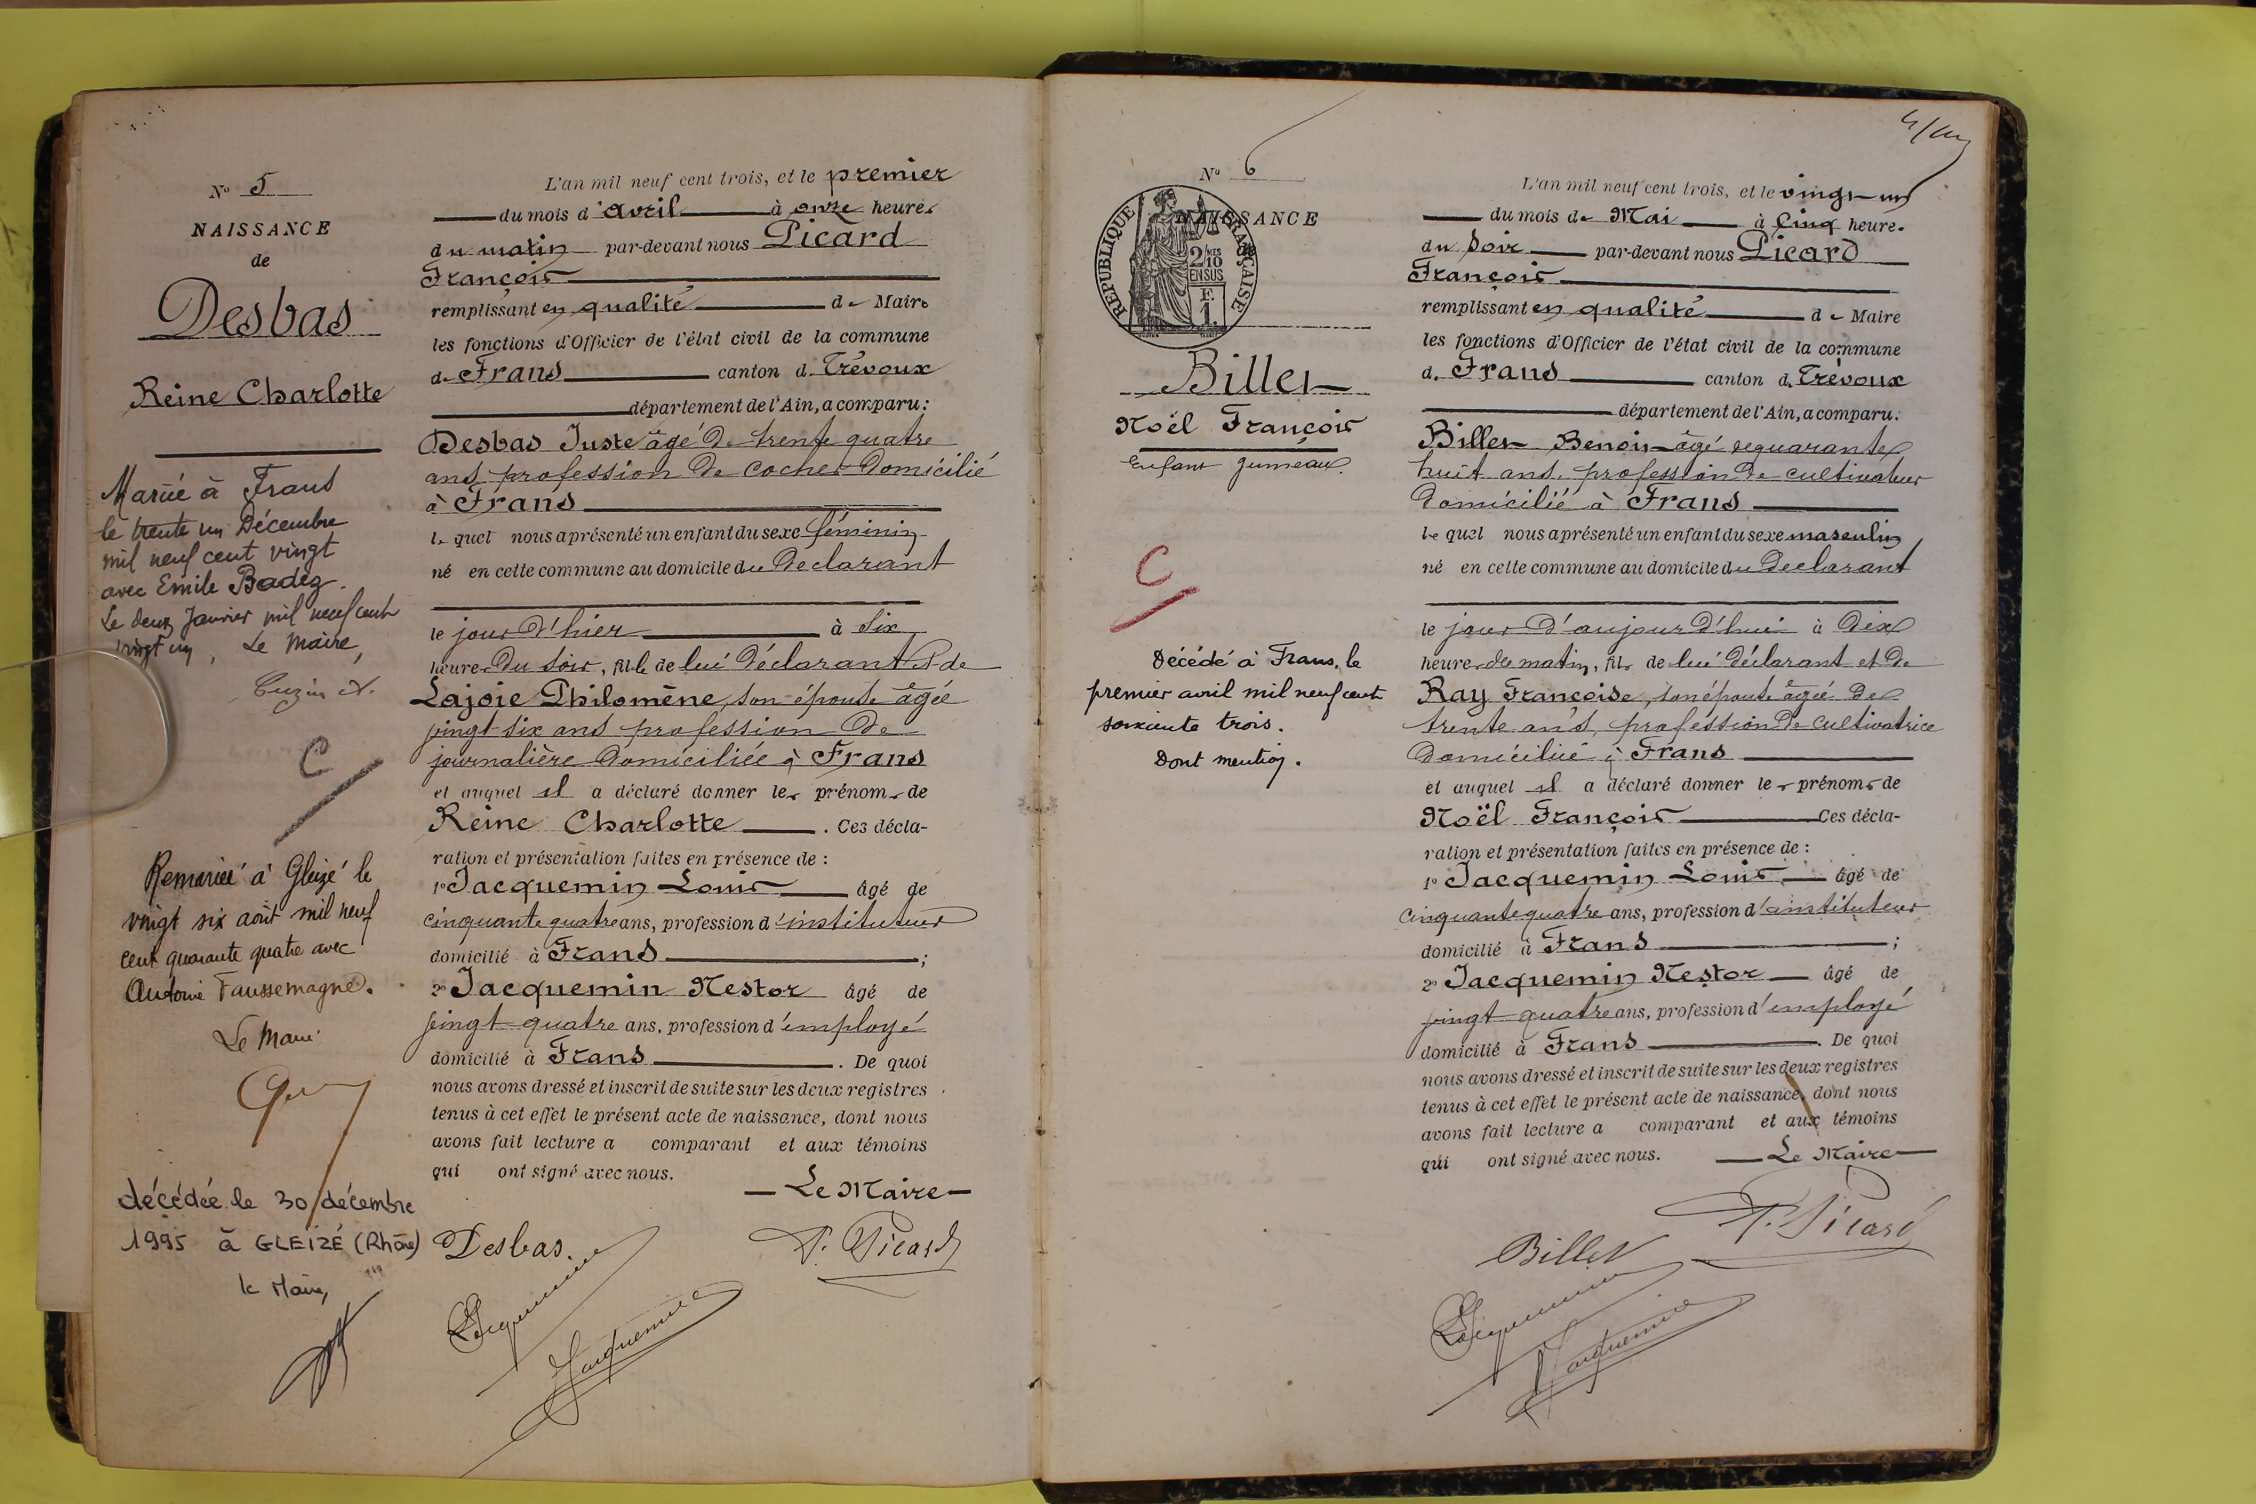 N° 5
NAISSANCE
de
Desbas
Reine Charlotte
Mariée à Frans
le trente un Décembre
mil neuf cent vingt
avec Emile Badez.
Le deux Janvier mil neuf cent
vingt un, Le Maire,
Cuzin
C
Remariée à Gleizé le
vingt six août mil neuf
cent quarante quatre avec
Antoine Faussemagne.
Le Maire
décédée le 30 décembre
1995 à GLEIZÉ (Rhône)
le Maire,
L'an mil neuf cent trois, et le premier
du mois d'avril à onze heures
du matin par-devant nous Picard
François
remplissant en qualité de Maire
les fonctions d'Officier de l'état civil de la commune
de Frans canton de Trévoux
département de l'Ain, a comparu:
Desbas Juste âgé de trente quatre
ans profession de cocher domicilié
à Frans
lequel nous a présenté un enfant du sexe féminin
né en cette commune au domicile du Declarant
le jour d'hier à six
heures du soir, fille de lui déclarant & de
Lajoie Philomène, son épouse âgée
vingt six ans profession de
journalière domiciliée à Frans
et auquel il a déclaré donner les prénoms de
Reine Charlotte. Ces décla-
ration et présentation faites en présence de:
1° Jacquemin Louis âgé de
cinquante quatre ans, profession d'instituteur
domicilié à Frans;
2° Jacquemin Nestor âgé de
vingt quatre ans, profession d'employé
domicilié à Frans. De quoi
nous avons dressé et inscrit de suite sur les deux registres
tenus à cet effet le présent acte de naissance, dont nous
avons fait lecture a comparant et aux témoins
qui ont signé avec nous.
Le Maire
Desbas.
F. Picard
Jacquemin
Jacquemin
N° 6
NAISSANCE
de
RÉPUBLIQUE FRANÇAISE
2/10 MES
EN SUS
F.
1.
Billet
Noël François
Enfant jumeau.
C
Décédé à Frans, le
premier avril mil neuf cent
soixante trois.
Dont mention.
L'an mil neuf cent trois, et le vingt-un
du mois de Mai à cinq heures
du soir par-devant nous Picard
François
remplissant en qualité de Maire
les fonctions d'Officier de l'état civil de la commune
de Frans canton de Trévoux
département de l'Ain, a comparu:
Billet Benoit âgé de quarante
huit ans, profession de cultivateur
domicilié à Frans
lequel nous a présenté un enfant du sexe masculin
né en cette commune au domicile du Declarant
le jour d'aujourd'hui à dix
heures du matin, fils de lui déclarant et de
Ray Françoise, son épouse âgée de
trente ans, profession de cultivatrice
domiciliée à Frans
et auquel il a déclaré donner les prénoms de
Noël François Ces décla-
ration et présentation faites en présence de:
1° Jacquemin Louis âgé de
cinquante quatre ans, profession d'instituteur
domicilié à Frans;
2° Jacquemin Nestor âgé de
vingt quatre ans, profession d'employé
domicilié à Frans. De quoi
nous avons dressé et inscrit de suite sur les deux registres
tenus à cet effet le présent acte de naissance, dont nous
avons fait lecture a comparant et aux témoins
qui ont signé avec nous.
Le Maire
F. Picard
Billet
Jacquemin
Jacquemin